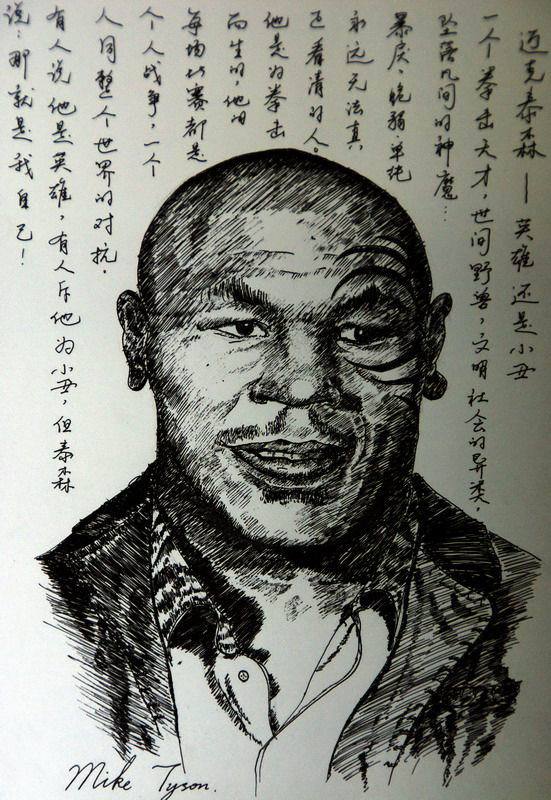 迈克泰森——英雄还是小丑
一个拳击天才，世间野兽，文明社会的异类，
坠落凡间的神魔…
暴戾、脆弱单纯
永远无法真
正看清的人。
他是为拳击
而生的，他的
每场比赛都是
个人战争，一个
人同整个世界的对抗.
有人说他是英雄，有人斥他为小丑，但泰森
说：那就是我自己！
Mike Tyson.